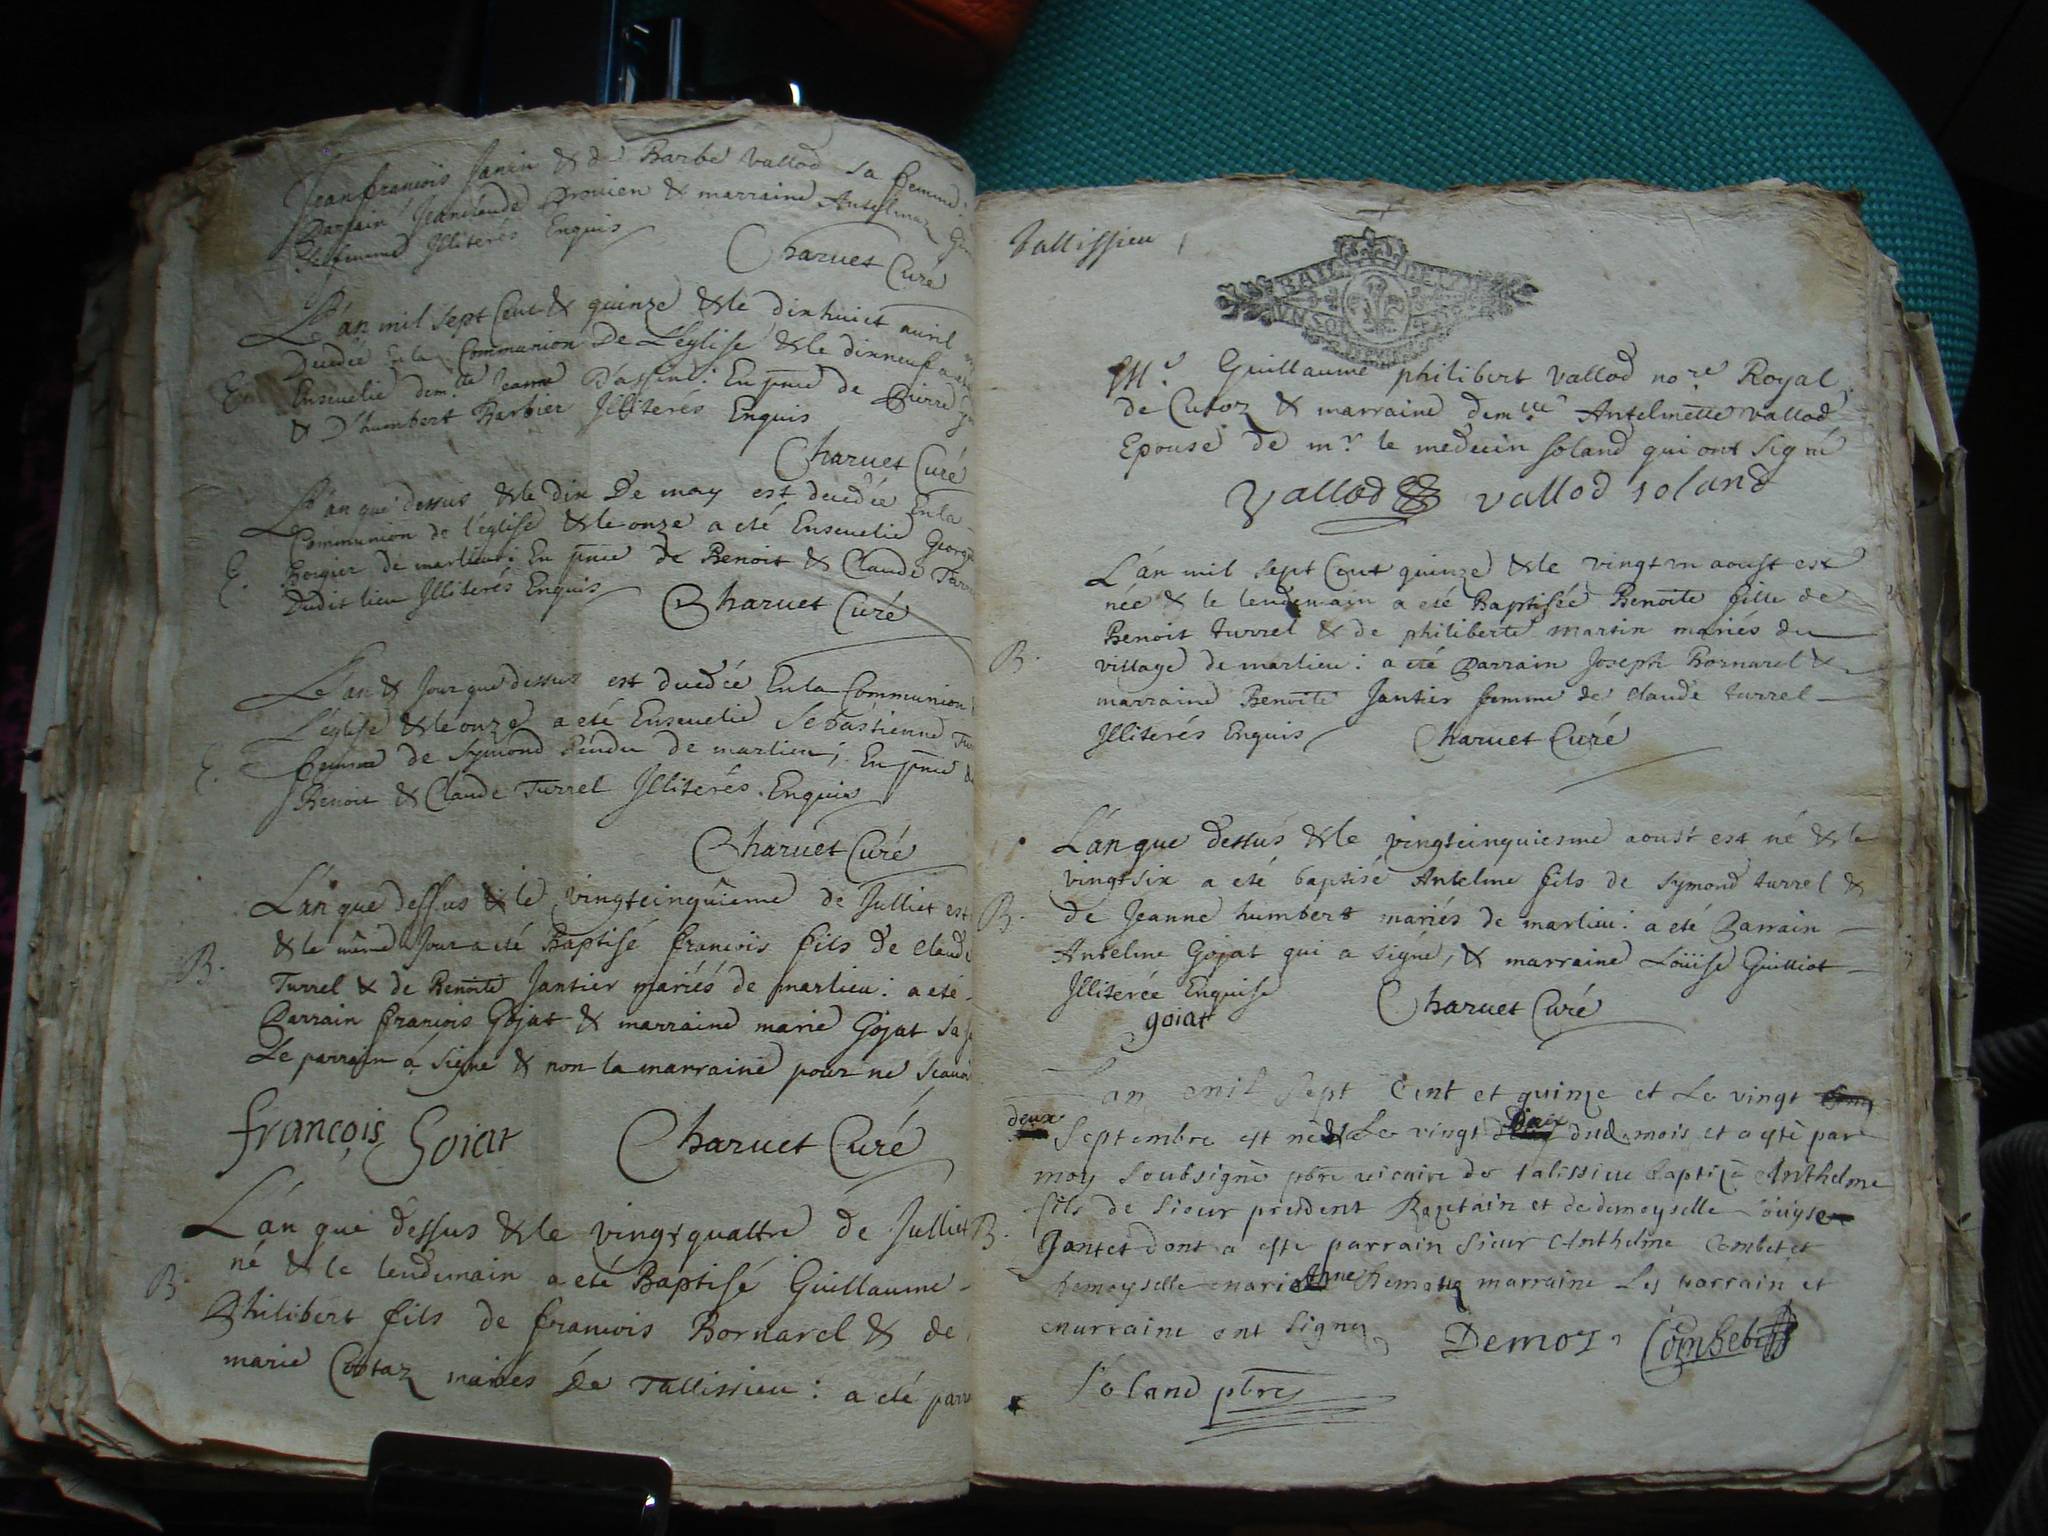 Jeanfrançois Janin & de Barbe Vallod sa femme:
Parrain Jeanclaude & marraine Antelmaz
femme Illiterés Enquis
Charuet Curé
L'an mil sept Cent & quinze & le dixhuict auril
Decedée En la Communion De L'église & le dixneuf a eté
E. Enseuelie dem.lle Jeanne D'assint: En pnce de Pierre
& D'humbert Barbier Illiterés Enquis
Charuet Curé
L'an que dessus & le dix De may est decedée En la
Communion de l'église & le onze a eté Enseuelie George
E. de marlieu: En pnce de Benoit & Claude Turrel
Dudit lieu Illiterés Enquis
Charuet Curé
Le an & Jour que dessus est decedée En la Communion
L'église & le onze a eté Enseuelie Sebastienne
E. femme de Symond de marlieu; En pnce de
Benoit & Claude Turrel Illiterés Enquis
Charuet Curé
L'an que dessus & le vingtcinquieme de Julliet est
& le même Jour a eté Baptisé françois fils de Claude
B. Turrel & de Benoite Jantier mariés de marlieu: a eté
Parrain françois Gojat & marraine marie Gojat sa
Le parrain a signé & non la marraine pour ne scauoir
françois Goiat Charuet Curé
L'an que dessus & le vingtquattre de Julliet
né & le lendemain a eté Baptisé Guillaume
B. Philibert fils de françois Bornarel & de
marie Cottaz mariés De Tallissieu: a eté parr
Tallissieu
M.e Guillaume philibert Vallod no.re Royal
de Culoz & marraine dem.lle Antelmette Vallod
Epouse de m.r le medecin Soland qui ont signé
Vallod vallod soland
L'an mil sept Cent quinze & le vingt un aoust est
née & le lendemain a eté Baptisée Benoite fille de
Benoit turrel & de philiberte martin mariés du
B. village de marlieu: a eté Parrain Joseph Bornarel &
marraine Benoite Jantier femme de Claude turrel
Illiterés Enquis Charuet Curé
L'an que dessus & le vingtcinquiesme aoust est né & le
vingtsix a eté baptisé Antelme fils de Symond turrel &
B. de Jeanne humbert mariés de marlieu: a eté Parrain
Antelme Gojat qui a signé, & marraine Loüise Guilliot
Illiterée Enquise Charuet Curé
goiat
Lan mil sept Cent et quinze et Le vingt
deux Septembre est né & Le vingt dudt mois et a esté par
moy soubsigné pbre vicaire de talissieu baptizé Anthelme
fils de sieur president et de demoyselle Louyse
B. Jantet dont a esté parrain sieur Anthelme Combet et
demoyselle marie Anne marraine Les parrain et
marraine ont signez Demoz Combet
Soland pbre